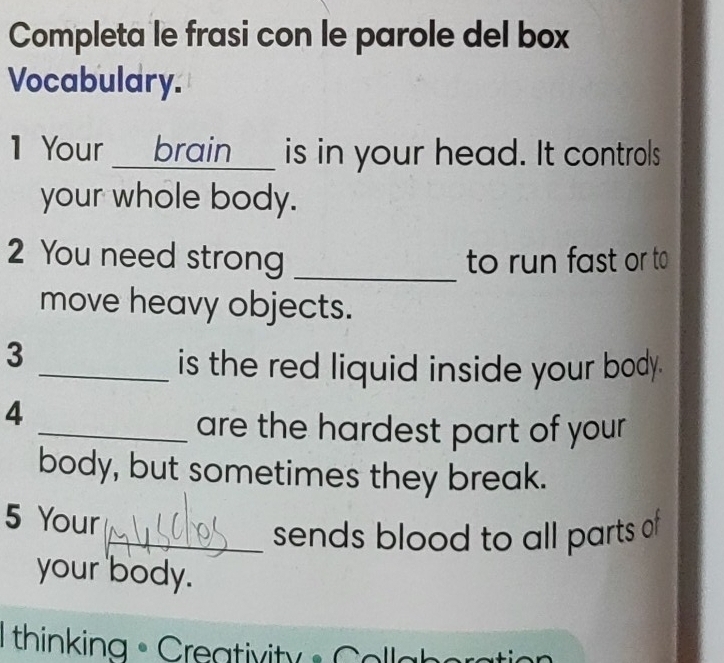 Completa le frasi con le parole del box
Vocabulary.
1 Your brain is in your head. It controls
your whole body.
2 You need strong ________ to run fast or to
move heavy objects.
3 ________ is the red liquid inside your body.
4 ________ are the hardest part of your
body, but sometimes they break.
5 Your muscles sends blood to all parts of
your body.
l thinking • Creativity • Collaboration